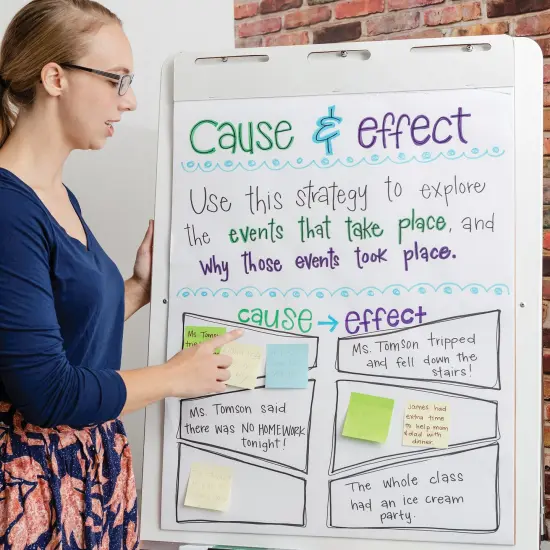 Cause & effect
Use this strategy to explore
the events that take place, and
why those events took place.
cause → effect
Ms. Tomson
Ms. Tomson tripped
and fell down the
stairs!
Ms. Tomson said
there was NO HOMEWORK
tonight!
James had
extra time
to help mom
& dad with
dinner.
The whole class
had an ice cream
party.